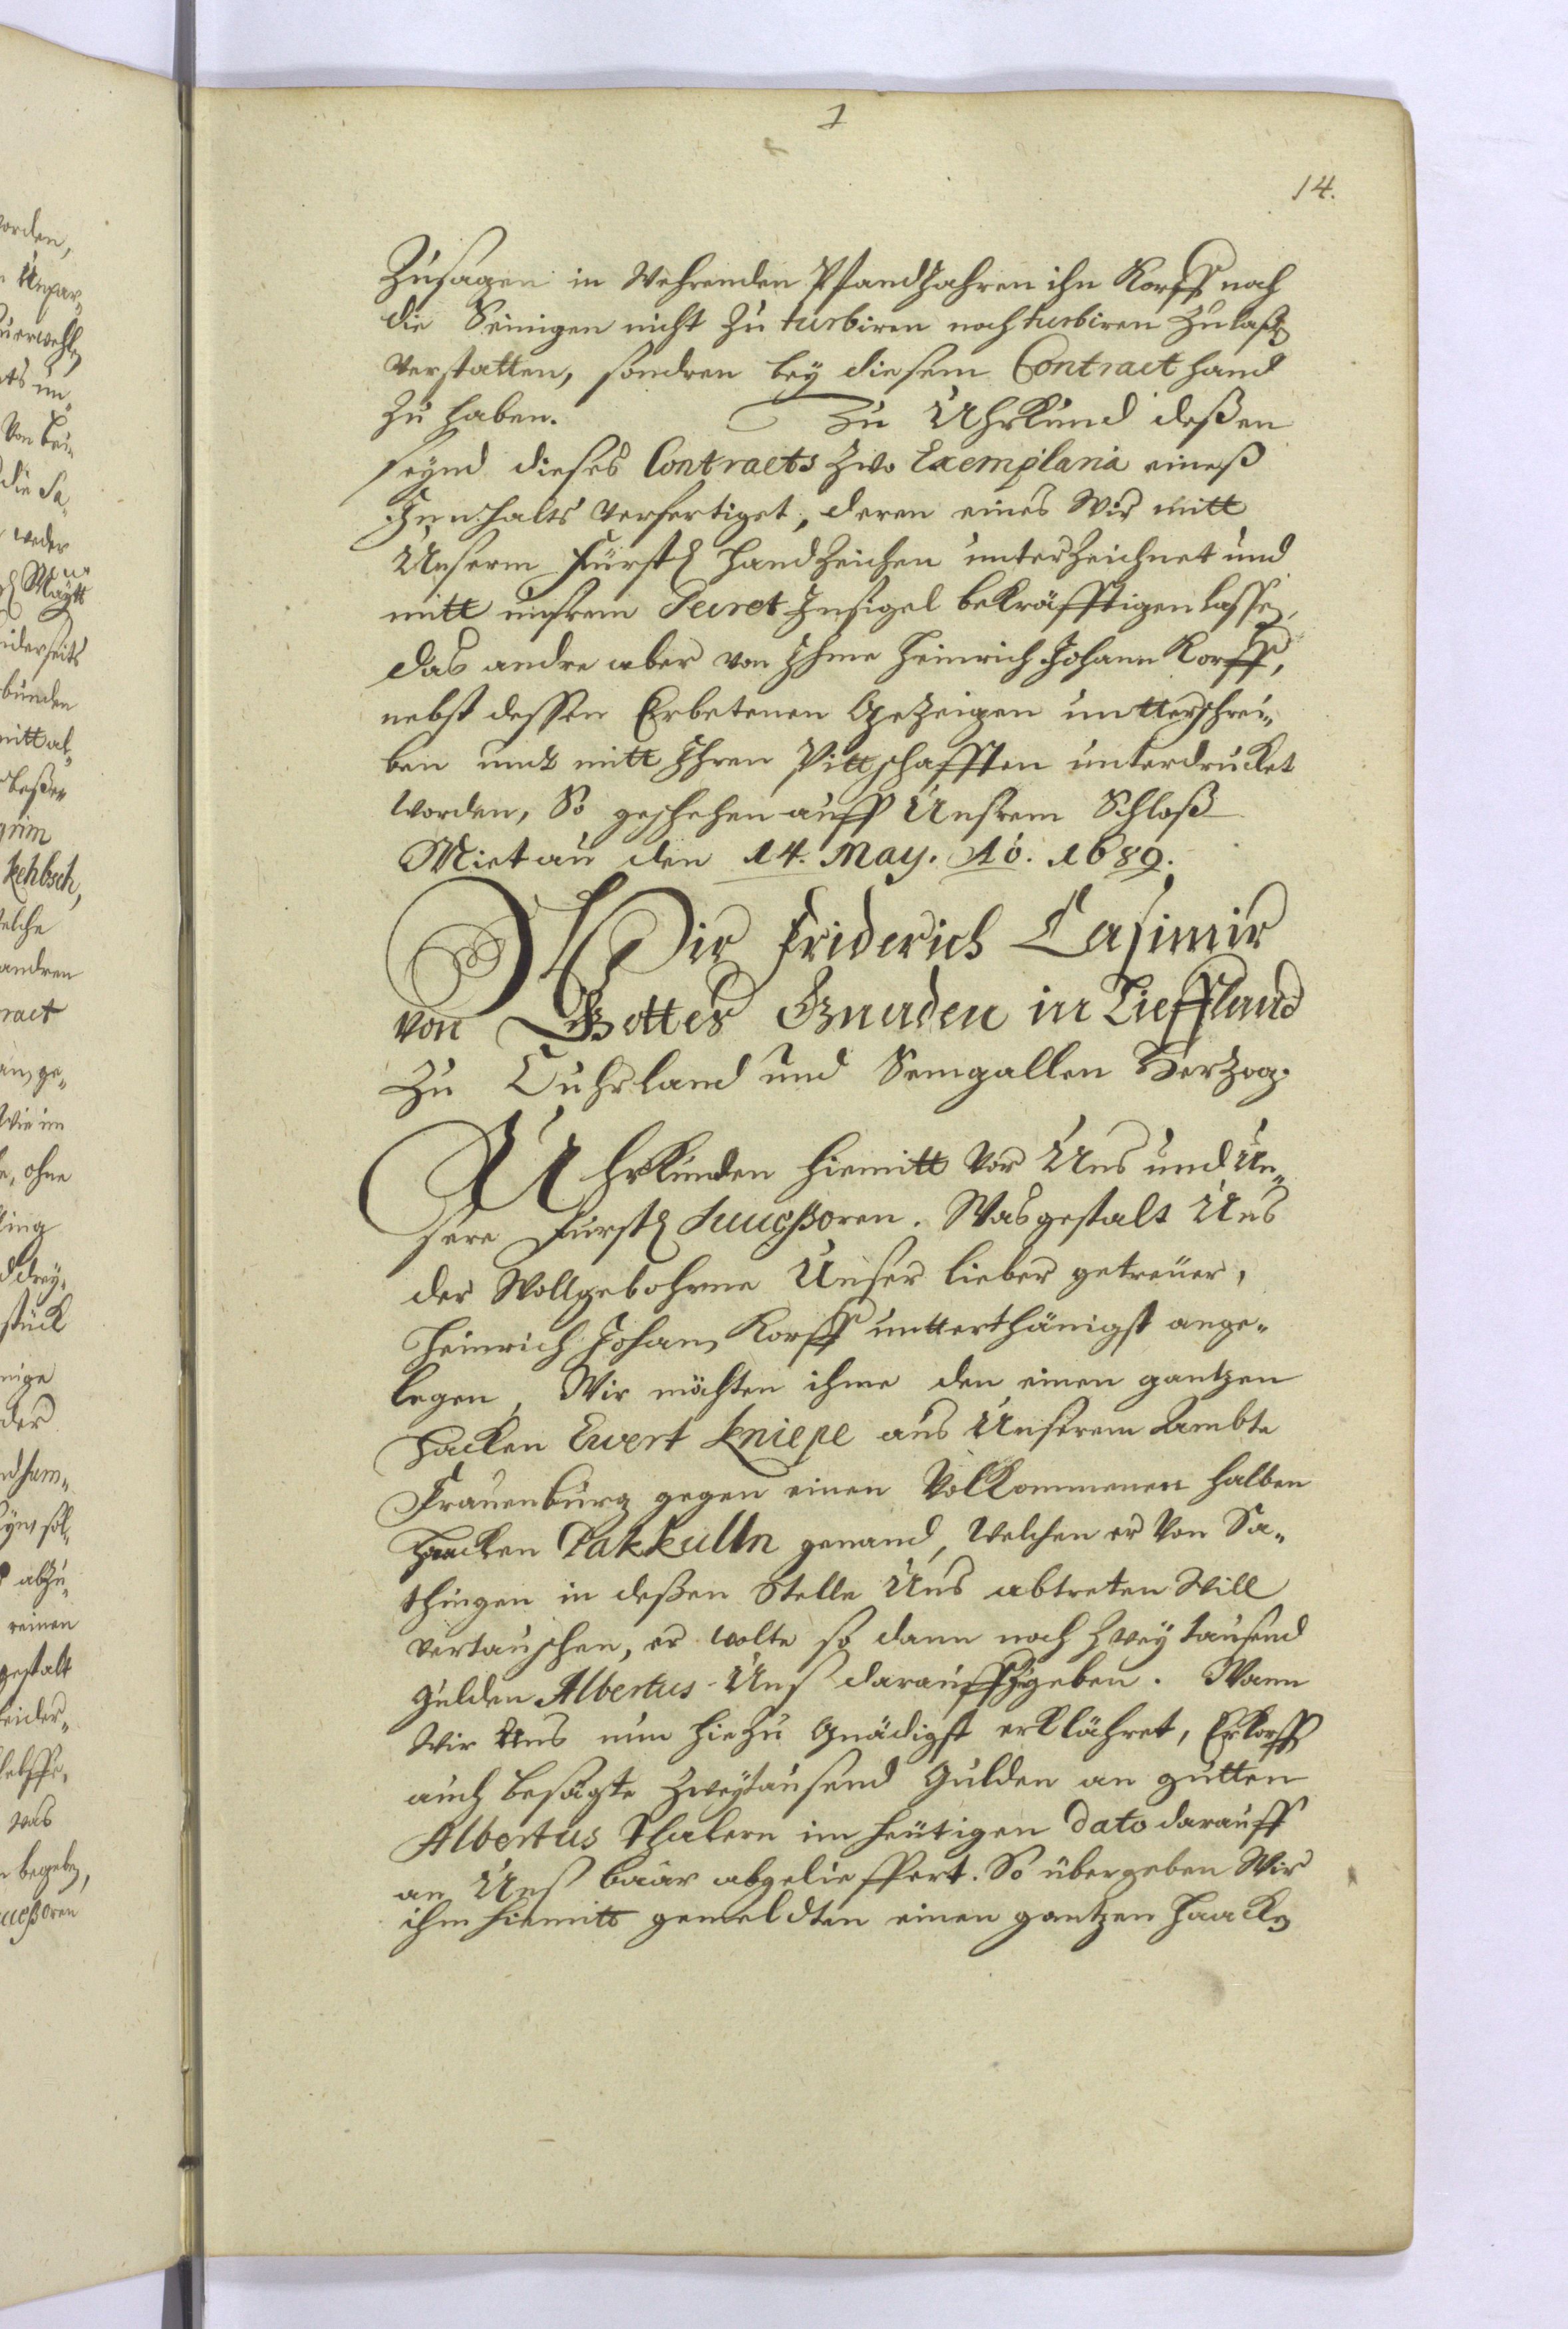 1
14.
Zusagen in Wehrenden Pfandjahren ihn Korff noch
die Seinigen nicht zu turbiren noch turbiren zulaßen
verstatten, sondren bey diesem Contract hand
zu haben. Zu Uhrkund deßen
seynd dieses Contracts zwo Exemplaria eineß
Innhalts verfertiget, deren eines Wir mitt
Unserm Fürstl Handzeichen unterzeichnet und
mitt unsrem Secret Insigel bekräfftigen lassen,
das andre aber von Ihme Heinrich Johann Korff,
nebst dessen Erbetenen Gezeigen untterschrei-
ben und mitt Ihren Pittschafften unterdrucket
worden, So geschehen auff Unsrem Schloß
Mietau den 14. May. Ao. 1689.
Wir Friderich Casimir
von Gottes Gnaden in Lieffland
zu Cuhrland und Semgallen Herzog.
Uhrkunden hiemitt vor Uns und Un-
sere Fürstl Succeßoren. Wasgestalt Uns
der Wollgebohrne Unser lieber getreuer,
Heinrich Johan Korff untterthänigst ange-
legen, Wir möchten ihme den einen gantzen
Hacken Ewert Kniepe aus Unserem Ambte
Frauenburg gegen einen Vollkommenen halben
Haacken Pakkulln genand, Welchen er Von Sa-
thingen in deßen Stelle Uns abtreten Will
vertauschen, er wolte so dann noch zwey tausend
Gulden Albertus Uns darauffzugeben. Wann
Wir Uns nun hiezu Gnädigst erklähret, Er Korff
auch besagte zweytausend Gulden an gutten
Albertus Thalern im heutigen dato darauff
an Uns baar abgelieffert. So übergeben Wir
ihm hiemitt gemeldten einen gantzen Haacken
orden,
Unpar-
uerwehlen
ts un-
Von bei-
die Sa-
weder
Maytt
iderseits
bunden
mitt al-
kehbsch,
elche
andren
ract
ge-
Wie im
ohne
ing
drey-
stück
nige
der
abzu-
reinen
gestalt
eider-
was
begeben,
uceßoren